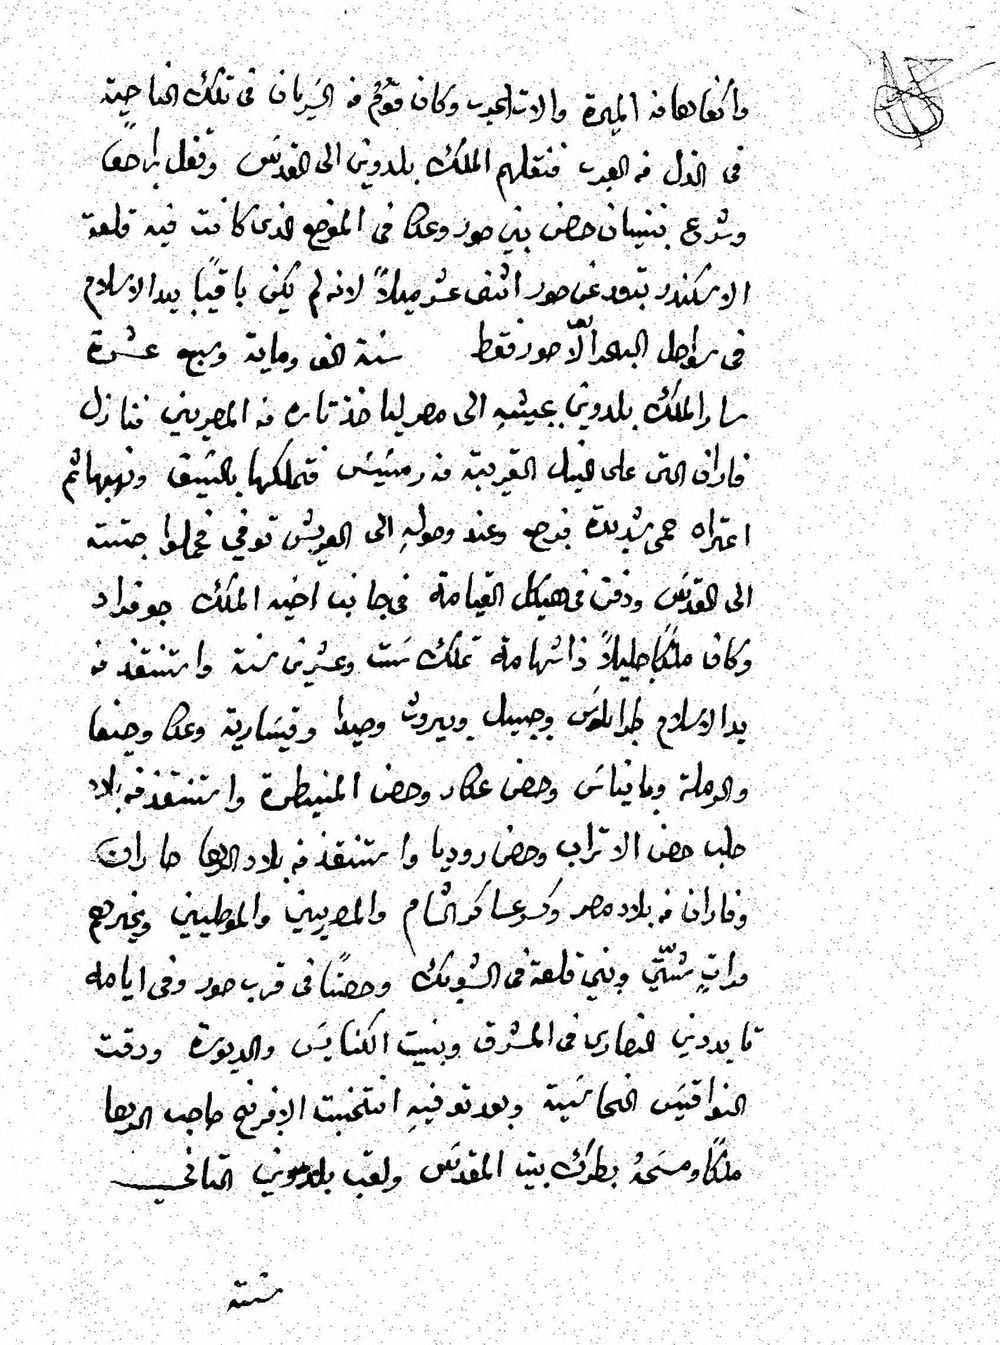 وآلات الحرب وكان قوم من السريان في تلك الناحية
في الذل من العرب فنقلهم الملك بلدوين الى القدس وقفل راجعًا
وشرع ببنيان حصن بين صور وعكا في الموضع الذي كانت فيه قلعة
الاسكندر بتبعد عن صور اثني عشر ميلاً لانه لم يكن باقيًا بيد الاسلام
في سواحل البحر الّا صور فقط سنة الف وماية وسبع عشرة
سار الملك بلدوين بجيشهِ الى مصر لياخذ تاره من المصريين فنازل
فاران التي على النيل القريبة من رمسيس فتملكها بالسيف ونهبها ثم
اعتراه حمى شديدة فرجع وعند وصولهِ الى العريش توفي فحملوا جتته
الى القدس ودفن في هيكل القيامة في جانب اخيه الملك جوفراد
وكان ملكًا جليلاً ذا شهامة تملك ست وعشرين سنة واستنقذ من
يد الاسلام طرابلوس وجبيل وبيروت وصيدا وقيسارية وعكا وحيفا
والرملة وبانياس وحصن عكار وحصن المنيطرة واستنقذ من بلاد
حلب حصن الاتراب وحصن روديا واستنقذ من بلاد الرها حاران
وفاران من بلاد مصر وكسر عساكر الشام والمصريين والموصليين وغيرهم
مرات شتّي وبني قلعة في الشوبك وحصنًا في قرب صور وفي ايامه
تايدت النصارى في المشرق وبنيت الكنايس والديورة ودقت
النواقيس النحاسية وبعد توفيهِ انتخبت الافرنج صاحب الرها
ملكًا ومسحهُ بطرك بيت المقدس ولقب بلدوين التاني
سنة